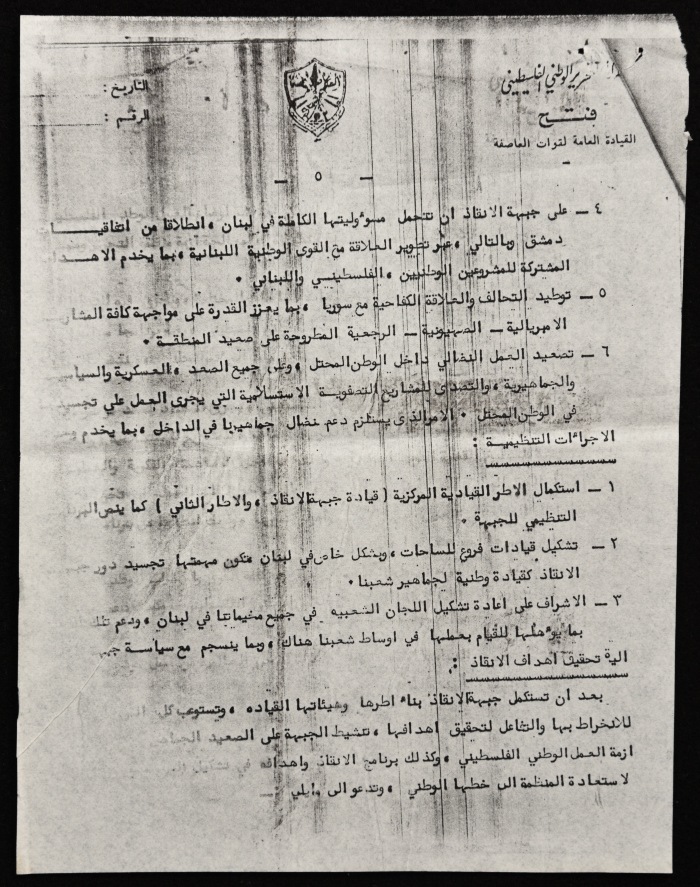 التحرير الوطني الفلسطيني
فتح
القيادة العامة لقوات العاصفة
التاريخ :
الرقم :
— ٥ —
٤ — على جبهة الانقاذ ان تتحمل مسوءوليتها الكاملة في لبنان ، انطلاقا من اتفاقيـــــات
دمشق وبالتالي ، عبر تطوير العلاقة مع القوى الوطنية اللبنانية ، بما يخدم الاهـد
المشتركة للمشروعين الوطنيين ، الفلسطينــي واللبناني .
٥ — توطيد التحالف والعلاقة الكفاحية مع سوريا ، بما يعزز القدرة على مواجهة كافة المشار
الامبريالية — الصهيونية — الرجعية المطروحة على صعيد المنطقة .
٦ — تصعيد العمل النضالي داخل الوطن المحتل ، وعلى جميع الصعد ، العسكرية والسياسـ
والجماهيرية ، والتصدى للمشاريع التصفوية الاستسلامية التي يجرى العمل على تجسيد
في الوطن المحتل . الامر الذى يستلزم دعم نضال جماهيرنا في الداخل ، بما يخدم
الاجراءات التنظيميـــة :
١ — استكمال الاطر القيادية المركزية ( قيادة جبهة الانقاذ ، والاطار الثاني ) كما ينص
التنظيمي للجبهة .
٢ — تشكيل قيادات فروع للساحات ، وبشكل خاص في لبنان تكون مهمتها تجسيد دور جبهـ
الانقاذ كقيادة وطنية لجماهير شعبنا .
٣ — الاشراف على اعادة تشكيل اللجان الشعبيه في جميع مخيماتنا في لبنان ، ودعم تلك
بما يوءهلها للقيام بعملها في اوساط شعبنا هناك ، وبما ينسجم مع سياسة جبهـ
الية تحقيق اهداف الانقاذ :
بعد ان تستكمل جبهة الانقاذ بناء اطرها وهيئاتها القياده ، وتستوعب
للانخراط بها والتفاعل لتحقيق اهدافها ، تنشيط الجبهة على الصعيد
ازمة العمل الوطني الفلسطيني ، وكذلك برنامج الانقاذ واهدافه في تشكيل
لاستعادة المنظمة الى خطها الوطني ، وتدعو الى مايلي :